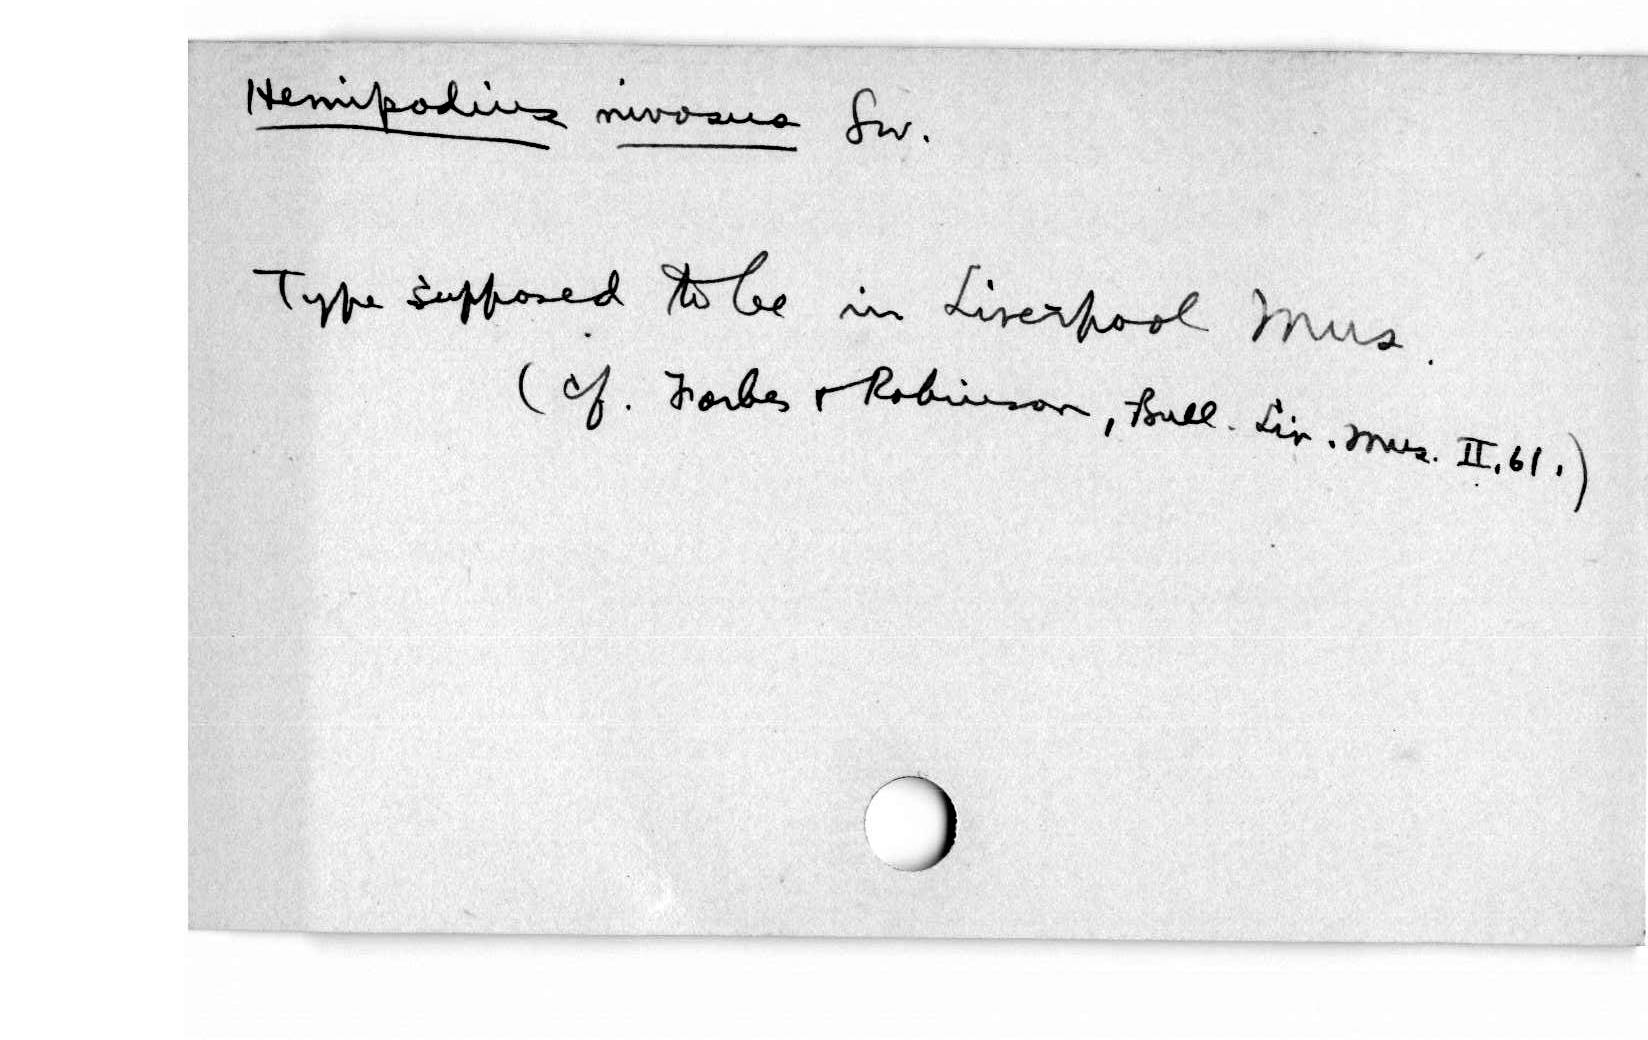 Hemipodius nivosus Sw.
Type supposed to be in Liverpool Mus.
(cf. Forbes & Robinson, Bull. Liv. Mus. II, 61.)